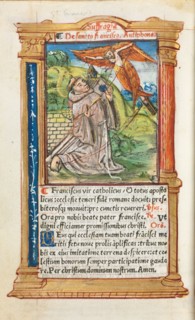 Suffragia
De sancto francisco. Antiphona
Franciscus vir catholicus & totus aposto
licus ecclesie teneri fidē romane docuit: pres
biterosq; monuit pre cunctis revereri.
Ora pro nobis beate pater francisce. Ut
digni efficiamur promissionibus christi.
Deus qui ecclesiam tuam beati francisci me
ritis fetu nove prolis amplificas: tribue no
bis ex eius imitatione terrena despicere: et ce
lestium donorum semper participatione gaude
re. Per christum dominum nostrum. Amen.